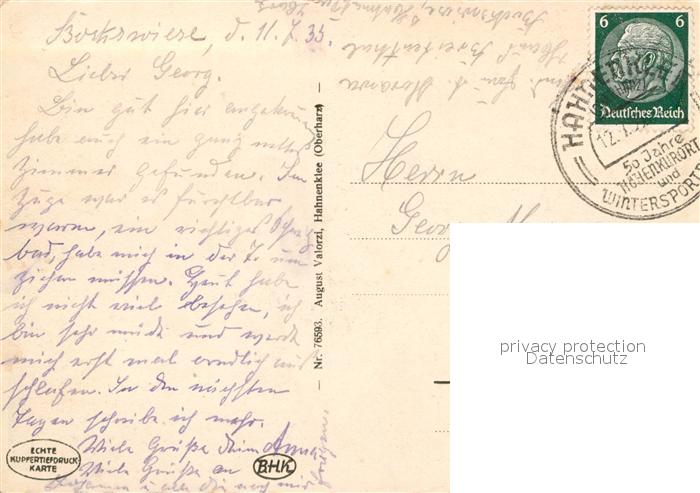 Bockswiese, d. 11.7.35.
Lieber Georg.
Bin gut hier angekommen
habe auch ein ganz nettes
Zimmer gefunden. Im
Zuge war es furchtbar
warm, ein richtiges
bad, habe mich in der um
ziehen müssen. Heut habe
ich nicht viel besehen, ich
bin sehr müde und werde
mich erst mal ordentlich aus
schlafen. In den nächsten
Tagen schreibe ich mehr.
Viele Grüße Dein Anna
Viele Grüße an
u alle die nach mir
fragen.
ECHTE
KUPFERTIEFDRUCK-
KARTE
BHK
Nr. 76593. August Valorzi, Hahnenklee (Oberharz)
Bockswiese, Hahnenklee
Haus
Herrn
Georg
6 6
Deutsches Reich
HAHNENKLEE
(HARZ)
12.7.
50 Jahre
HÖHENKURORT
und
WINTERSPORT
privacy protection
Datenschutz